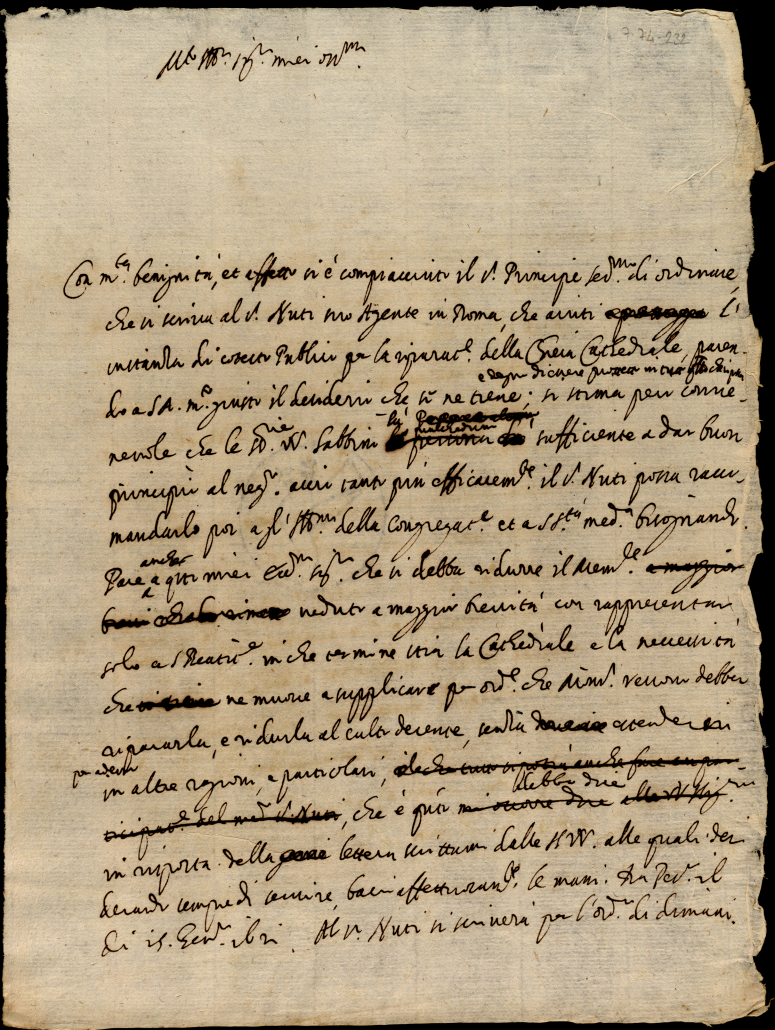 7-74-222
Con m.ta benignità, et affetto si è compiacciuto il s.r Principe Ser.mo di ordinare,
che si scriva al s.r Nuti suo Agente in Roma, che aiuti l'
instanza di cotesto Publico per la riparat.e della Chiesa Cathedrale, paren-
do a S.A. m.to giusto il desiderio che se ne tiene; si stima però convie-
nevole che le SS.rie VV. sufficiente a dar buon
principio al neg.o acciò tanto più efficacem.te il s.r Nuti possa racco-
mandarlo poi a gl' Ill.mi della Congregat.e et a S.S.tà med.a bisognando.
Pare anche a q.ti miei sig.ri che si debba ridurre il Mem.le a maggior
veduto a maggior brevità con rappresentar
solo a S. Beatit.e in che termine stia la Cathedrale e la necessità
che ne muove a supplicare per ord.e che Mons.r Vescovo debba
ripararla, e ridurla al culto decente, senza attender
per adesso
in altre ragioni, e particolari,
debbo dire
che è q.to
in risposta della lettera scrittami dalle SS. VV. alle quali desi
derando sempre di servire, bacio affettuosam.te le mani. Da
di 15. Gen.o Al s.r Nuti si scriverà per l'ord.o di dimani.